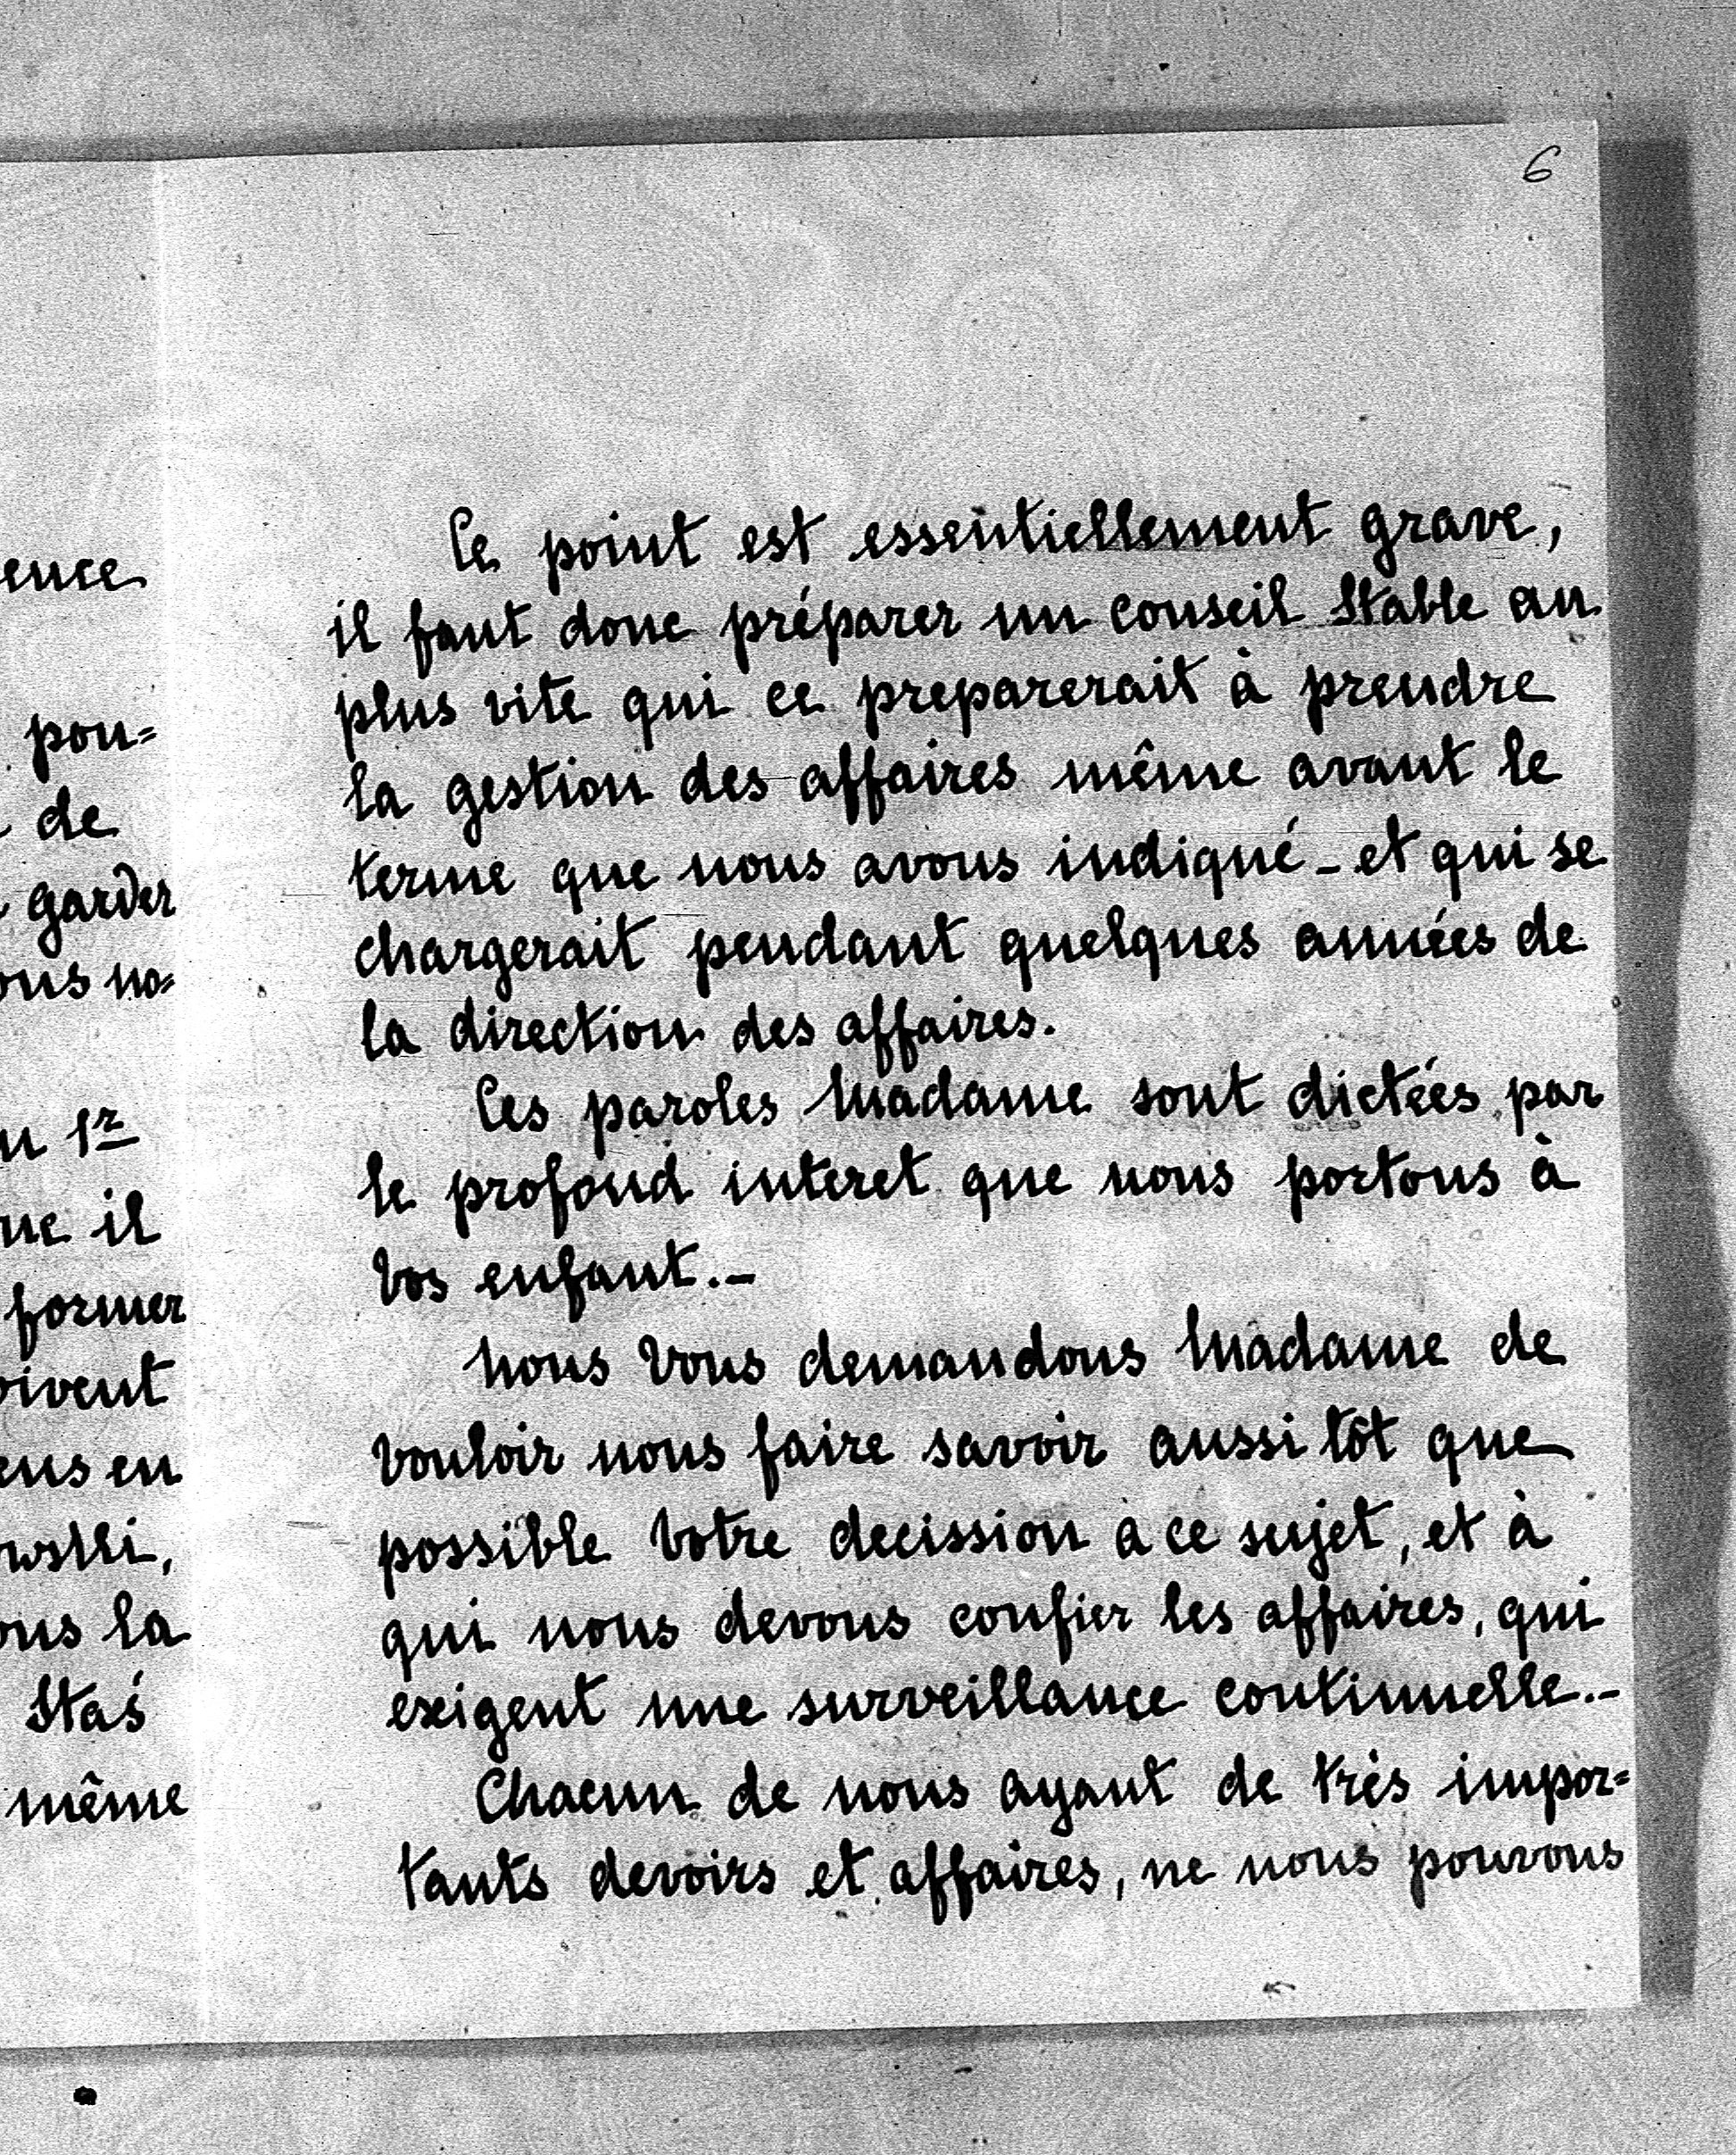 6
ence
pou=
de
garder
ous no=
1r
il
former
oivent
ens en
wski,
ous la
Staś
même
Ce point est essentiellement grave,
il faut donc préparer un conseil stable au
plus vite qui ce preparerait à prendre
la gestion des affaires même avant le
terme que nous avons indiqué - et qui se
chargerait pendant quelques années de
la direction des affaires.
Ces paroles Madame sont dictées par
le profond interet que nous portons à
Vos enfant.-
Nous Vous demandons Madame de
vouloir nous faire savoir aussi tôt que
possible Votre decission à ce sujet, et à
qui nous devons confier les affaires, qui
exigent une surveillance continuelle.-
Chacun de nous ayant de très impor=
tants devoirs et affaires, ne nous pouvons